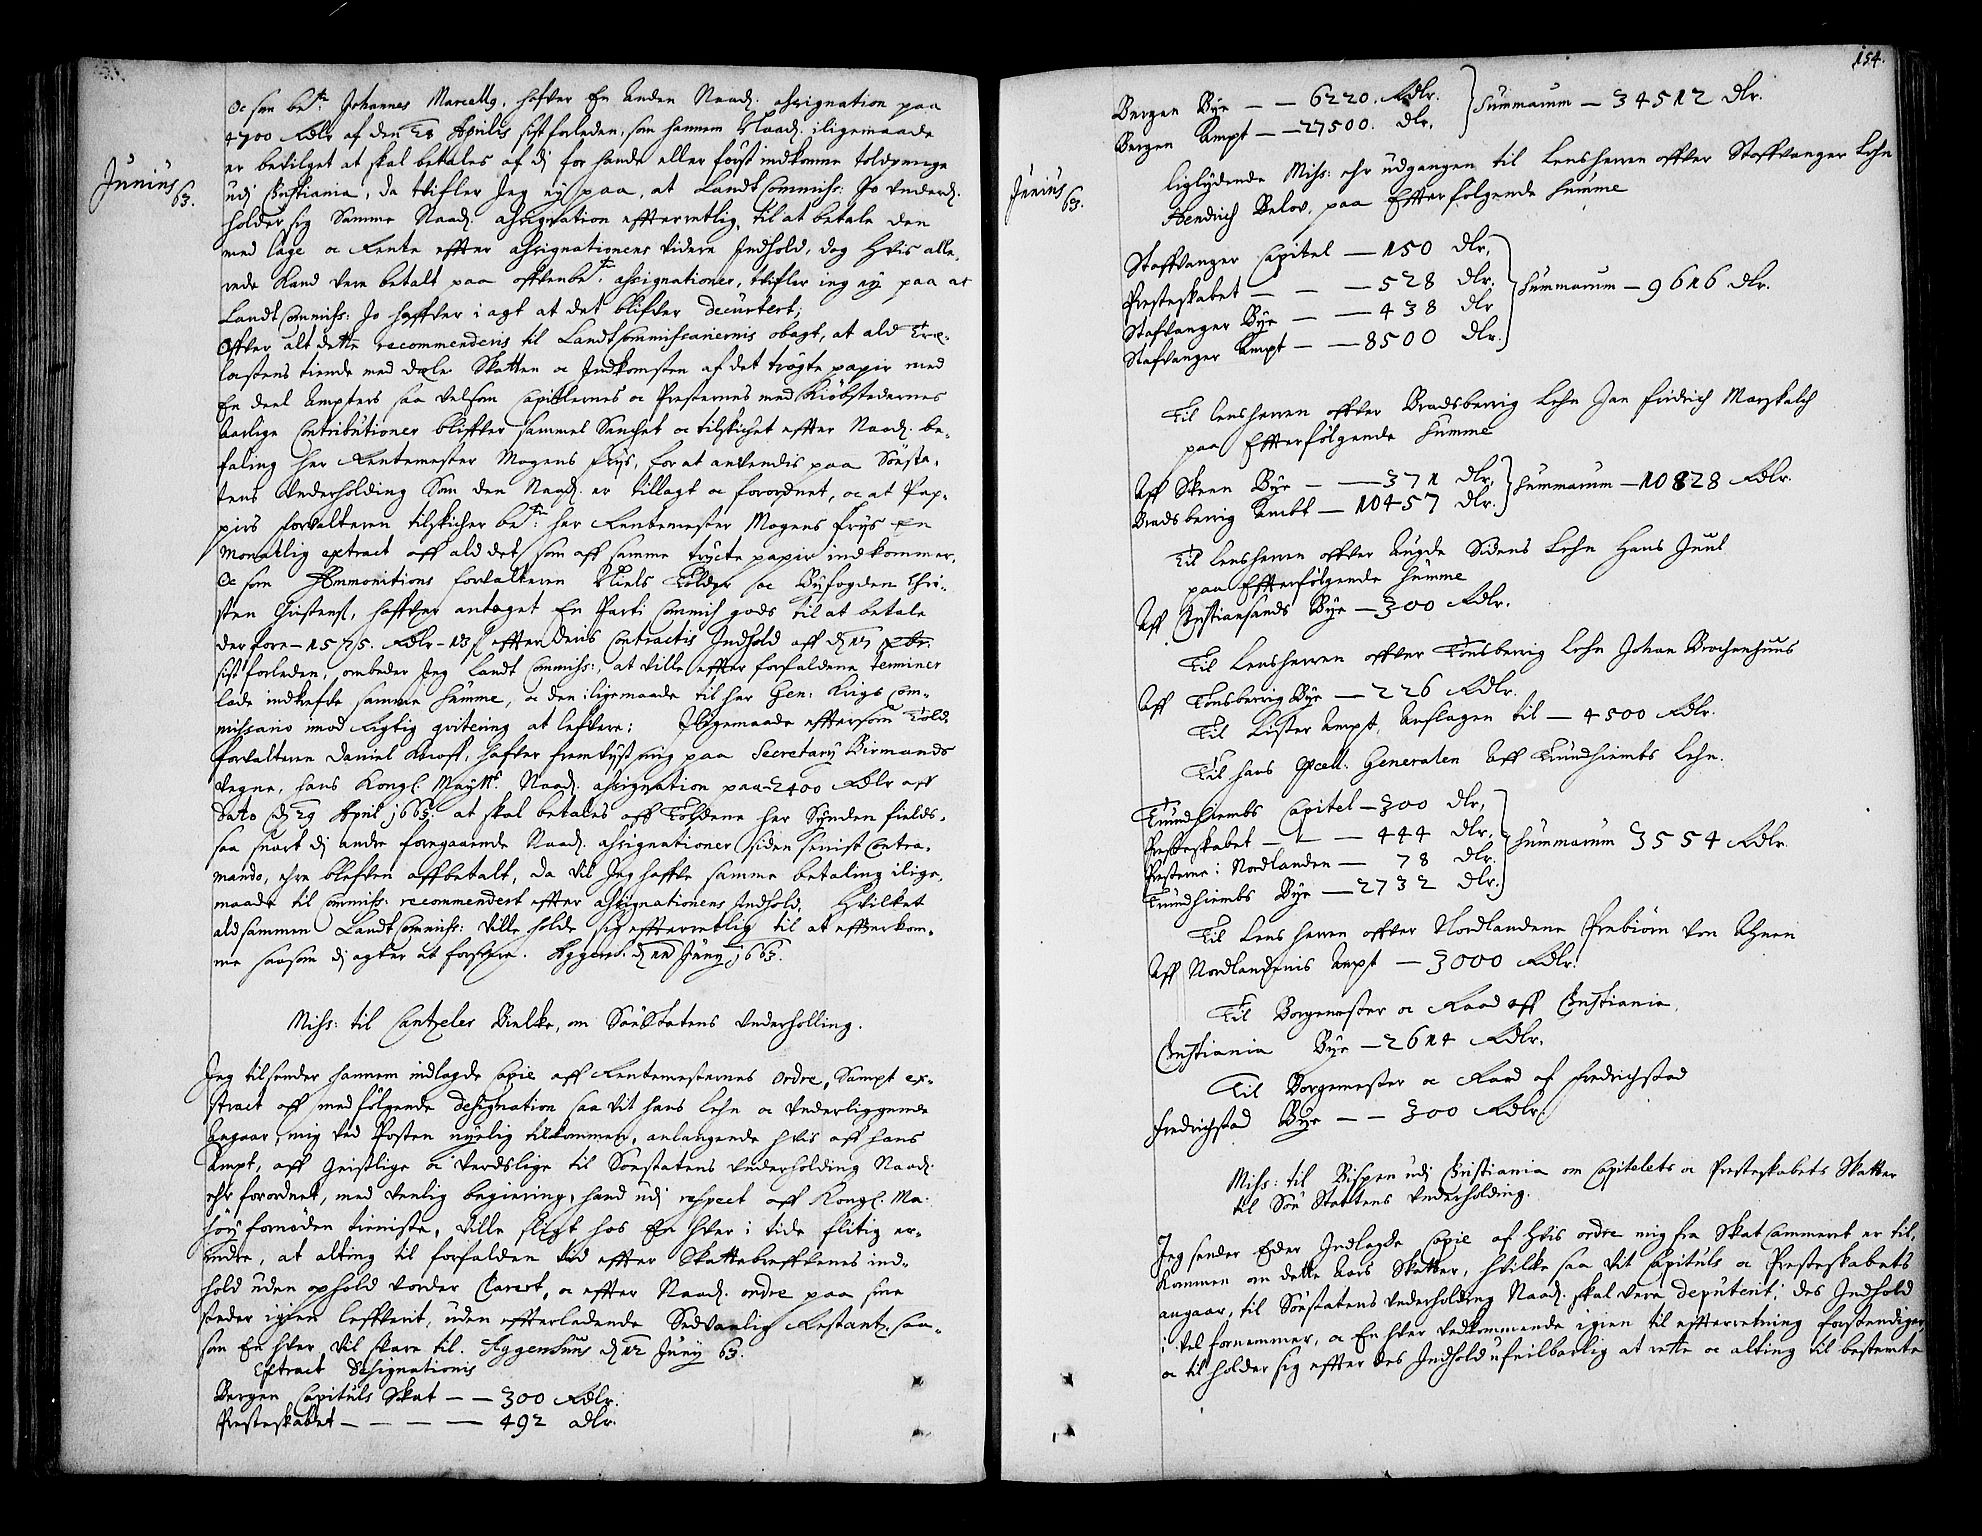 Junius
63.
Oc som bete. Johannes Marcelly, hafver En Anden Naad. assignation paa
4700 Rdlr af den 28 Aprilis sist forleden, som hannem Naad. iligemaade
er bevilget at skal betales af dj for hande eller først indkomne toldpenge
udj Christiania, da tvifler Jeg ey paa, at Landt Commiss: Jo underd.
holder sig Samme Naad. assignation effterretlig, til at betale den
med lage oc Rente effter assignationens videre Indhold, dog Hvis alle,
rede kand vere betalt paa offvenbete. assignationer, tvifler ieg ey paa at
Landt Commiss: Jo haffver i agt at det blifver decurtert;
Offver alt dette recommenderis til Landtcommissariernis obagt, at ald Træ-
lastens tiende med dele Skatten oc Indkomsten af det trögte papir med
En deel Ampters saa velsom Capitlernes oc Presternes med Kiøbstedernes
Aarlige Contributioner bliffver sammel Sanchet oc tilskichet effter Naad. be-
faling her Rentemester Mogens Friis, for at anvendis paa Söesta-
tens Underholding Som den Naad. er tillagt oc forordnet, oc at Pap-
pirs forvalteren tilskicher bete: her Rentemester Mogens Friis En
Monatlig extract aff ald det, som aff samme trycte papir indkommer.
Oc som Ammonitions forvalteren Niels Tolder oc Byfogden Chri-
sten Christens., haffver antaget En Parti Commiss gods til at betale
derfore - 1575. Rdlr - 13 s effter deris Contractis Indhold aff d 17 xbr:
sist forleden, ombeder Jeg Landt Commiss:, at ville effter forfaldene terminer
lade indkrefve samme Summe, oc den iligemaade til her Gen: Krigs Com-
missario imod Rigtig qvitering at lefvere; Iligemaade effttersom Told-
forvalteren Daniel Knoff, hafver fremvjst mig paa Secretary Birmands
vegne, hans Kongl. Maytts. Naad. assignation paa 2400 Rdlr aff
Dato d 29 April 1663. at skal betales aff Toldene her Synden fields,
saa snart dj andre foregaaende Naad. assignationer siden senist Contra-
mando, ehre blefven affbetalt, da vil Jeg haffve samme betaling ilige-
maade til Commiss: recommendert effter assignationens Indhold. Hvilket
aldsammen Landt Commiss: ville holde sig effterretlig til at effterkom-
me saasom dj agter at forsvare. Aggers. d 12 Juny 1663.
Miss: til Cantzeler Bielke, om Söe Statens Underholling.
Jeg tilsender hannem indlagde Copie aff Rentemesternes ordre, Sampt ex-
tract aff medfölgende designation saa vit hans Lehn oc Underliggende
Angaar, mig ved Posten nyelig tilkommen, anlangende hvis aff hans
Ampt, aff Geistlige oc Verdslige til Söestatens Underholding Naad.
ehr forordnet, med venlig begiering, hand udj respect aff Kongl. Ma:
höyfornöden tieniste, ville sligt hos En hver i tide flitig er-
indre, at alting til forfalden tid effter Skattebreffvenes ind-
hold uden ophold vorder Clarert, oc effter Naad. ordre paa sine
steder igien leffverit, uden effterladende Sedvanlig Restantz, saa-
som En hver vil svare til. Aggershuus d 12 Juny 63.
Extract Designationis
Bergen Capituls Skat — — 300 Rdlr.
Presteskabet — — — — 492 Rdlr.
154.
Junius
63.
Bergen Bye — — 6220. Rdlr.
Bergen Ampt — — 27500. dlr. Summarum — 34512 dlr.
liglydende Miss: ehr udgangen til Lensherren offver Staffvanger Lehn
Hendrich Below, paa Effterfölgende Summe
Staffvanger Capitel — 150 dlr,
Presteskabet — — — 528 dlr,
Stafvanger Bye — — 438 dlr
Stafvanger Ampt — — 8500 dlr. Summarum — 9616 dlr.
Til lensherren offver Bradsberrig Lehn Jan Fridrich Marskalch
paa Effterfölgende Summe
Aff Skeen Bye — — 371 dlr,
Bradsberrig Ambt — 10457 dlr. Summarum — 10828 Rdlr.
Til Lensherren offver Augde Sidens Lehn Hans Juul
paa Effterfölgende Summe
Aff Christiansands Bye — 300 Rdlr.
Til Lensherren offver Tonsberrig Lehn Johan Brochenhuus
Aff Tonsberrig Bye — 226 Rdlr.
Til Lister Ampt, Anslagen til — 4500 Rdlr.
Til hans Excell: Generalen Aff Trundhiembs Lehn.
Trundhiembs Capitel — 300 dlr,
Presteskabet — — — 444 dlr,
Presterne i Nordlanden — 78 dlr.
Trundhiembs Bye — 2732 dlr. Summarum 3554 Rdlr.
Til Lens herren offver Nordlandene Prebiörn von Ahnen
Aff Nordlandenis Ampt — 3000 Rdlr.
Til Borgemester oc Raad aff Christiania.
Christiania Bye — 2614 Rdlr.
Til Borgemester oc Raad af Fredrichstad
Fredrichstad Bye — — 300 Rdlr.
Miss: til Bispen udj Christiania om Capitelets oc Presteskabets Skatter
til Söe Statens Underholding.
Jeg sender Eder Indlagde Copie af Hvis ordre mig fra Skat Cammeret er til,
kommen om dette Aars Skatter, hvilke saa vit Capituls oc Presteskabets
angaar, til Söestatens Underholding Naad. skal vere deputerit; des Indhold
i vel fornemmer, oc En hver vedkommende igien til effterretning forstendiger,
oc til holder sig effter des Indhold ufeilbarlig at rette oc alting til bestemte